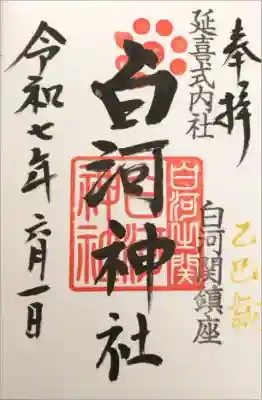 奉拝
乙巳歳
延喜式内社
白河関鎮座
白河之関
白河神社
白河神社
令和七年 六月一日